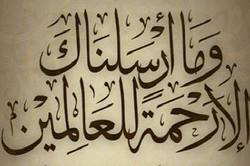 وَمَا أَرْسَلْنَاكَ
إِلَّا رَحْمَةً لِّلْعَالَمِينَ